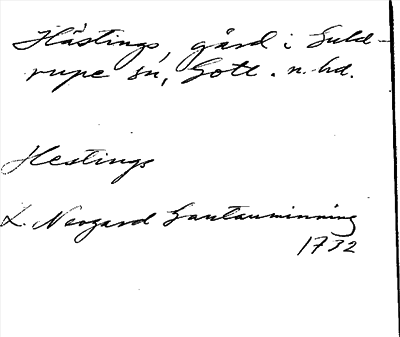 Hästings, gård i Guld-
rupe sn, Gotl. n. hd.
Hestings
L. Neogard Gautauminning
1732